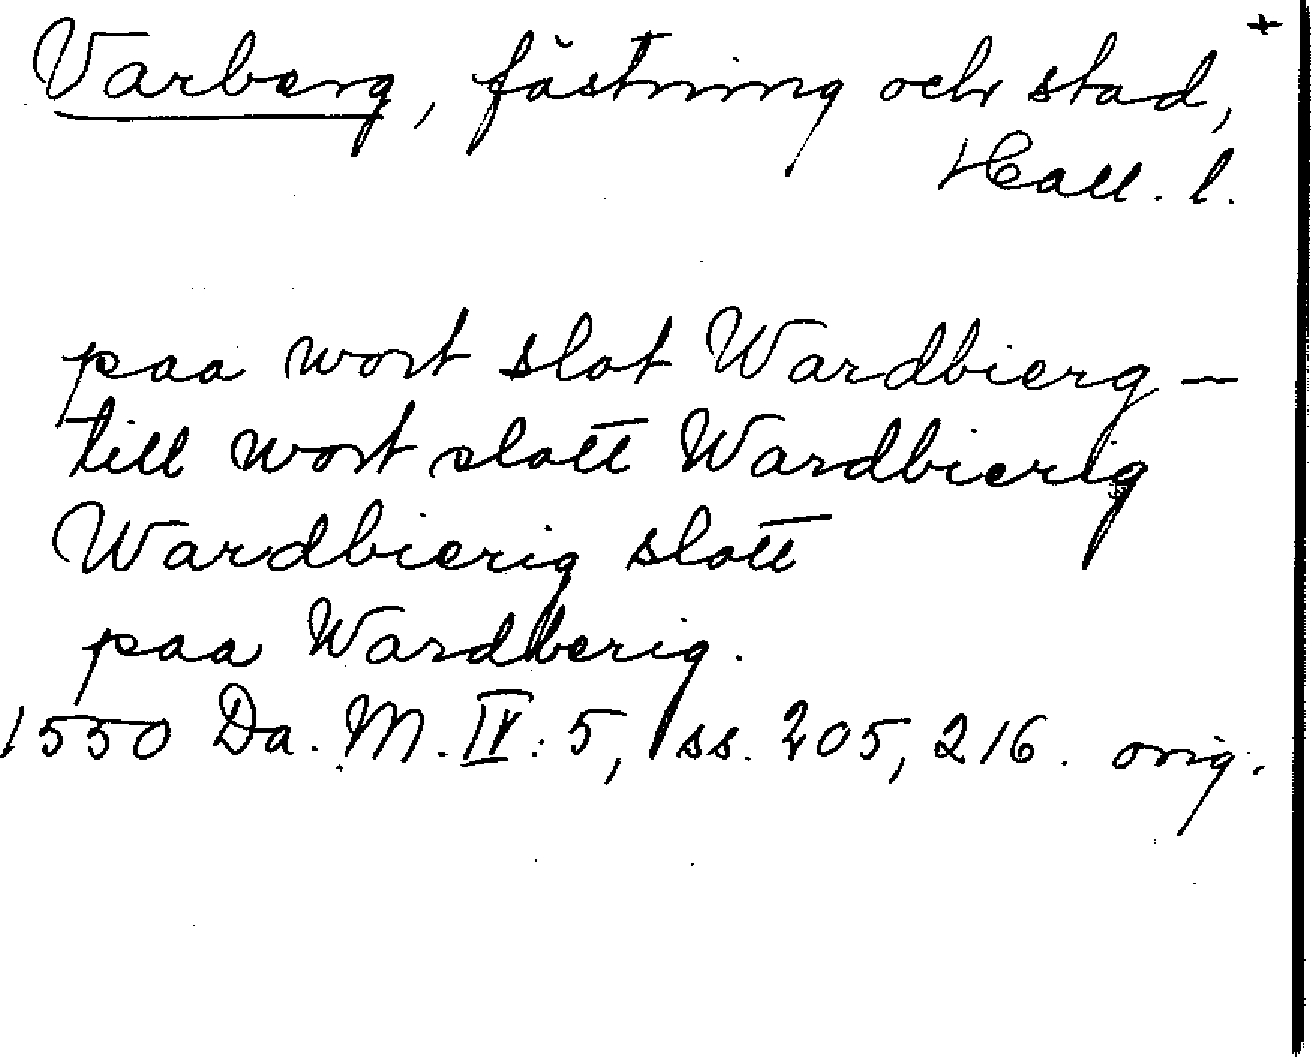 +
Varberg, fästning och stad,
Hall. l.
paa wort slot Wardbierg –
till wort slott Wardbierig
Wardbierig slott
paa Wardberig.
1550 Da. M. IV: 5, ss. 205, 216. orig.